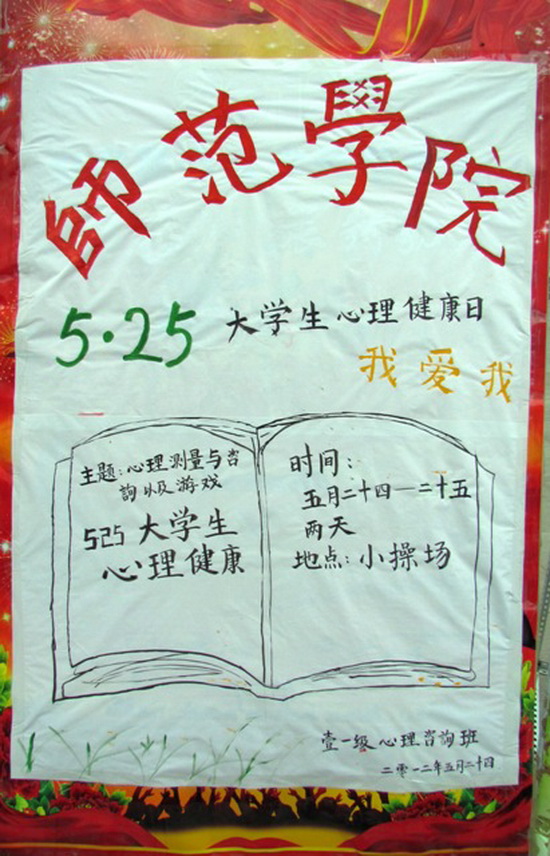 師范學院
5·25 大学生心理健康日
我爱我
主题:心理测量与咨
詢以及游戏
525 大学生
心理健康
时间:
五月二十四—二十五
两天
地点:小操场
壹一级心理咨詢班
二零一二年五月二十四